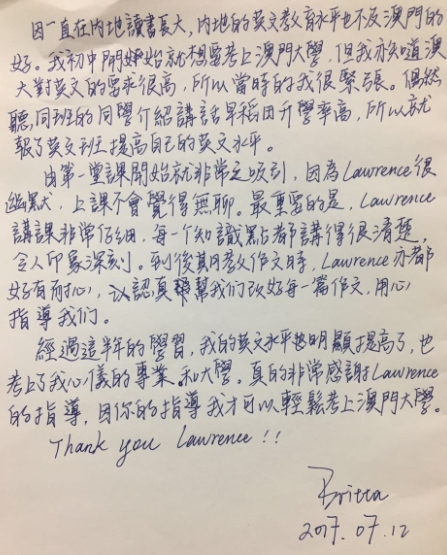 因一直在內地讀書長大，內地的英文教育水平也不及澳門的
好。我初中開始就想要考上澳門大學，但我亦知道澳
大對英文的要求很高，所以當時的我很緊張。偶然
聽同班的同學介紹講話早稻田升學率高，所以就
報了英文班提高自己的英文水平。
由第一堂課開始就非常之吸引，因為Lawrence很
幽默，上課不會覺得無聊。最重要的是，Lawrence
講課非常仔細，每一个知識點都講得很清楚，
令人印象深刻。到後期教作文時，Lawrence亦都
好有耐心，認真幫我們改好每一篇作文，用心
指導我們。
經過這半年的學習，我的英文水平明顯提高了，也
考上了我心儀的專業和大學。真的非常感謝Lawrence
的指導，因你的指導我才可以輕鬆考上澳門大學。
Thank you Lawrence !!
Britta
2017.07.12